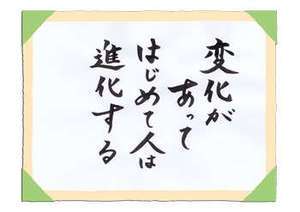 変化が
あって
はじめて人は
進化する